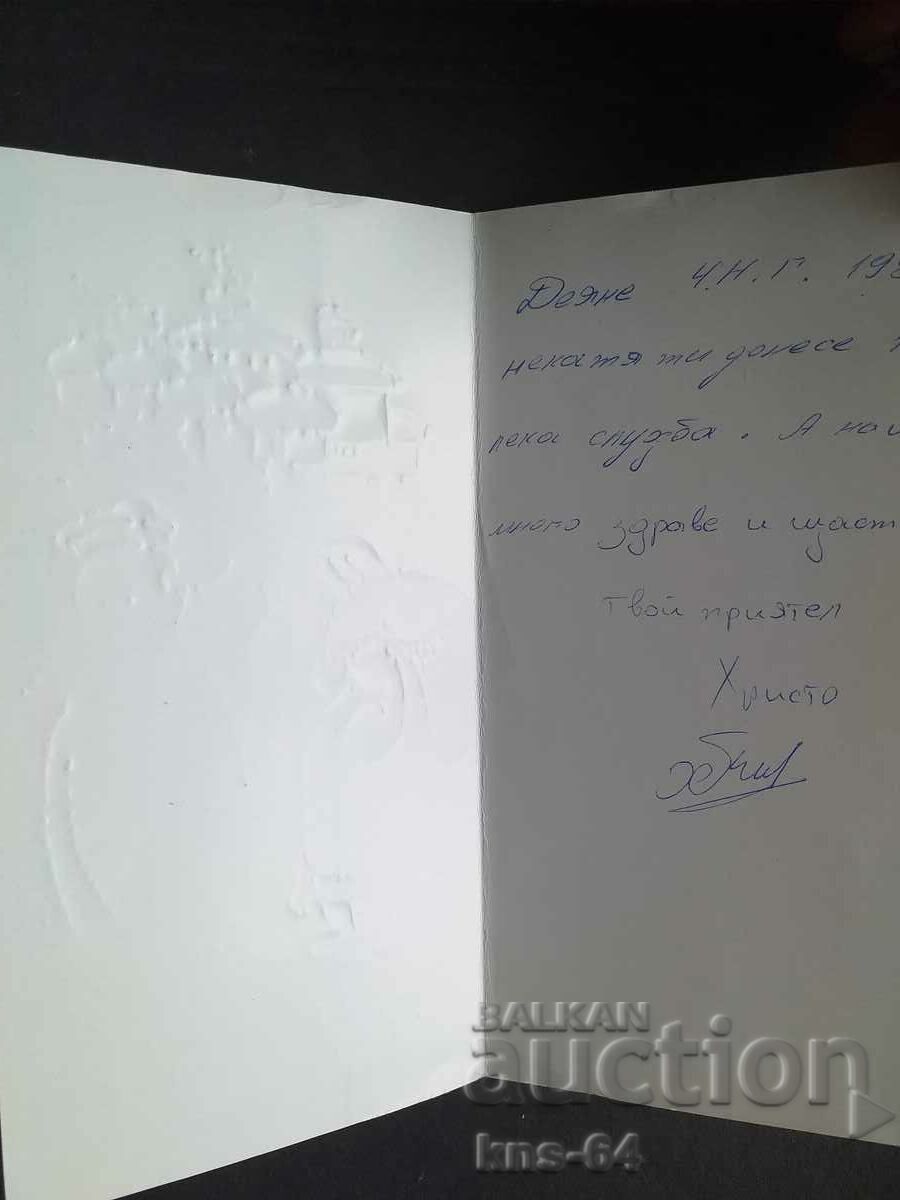 Деяне Ч.Н.Г. 198
нека тя ти донесе
лека служба. А най
много здраве и щаст
твой приятел
Христо
BALKAN
auction
kns-64